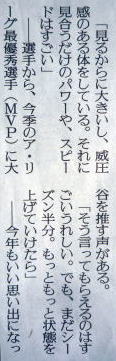 「見るからに大きいし、威圧
感のある体をしている。それに
見合うだけのパワーや、スピー
ドはすごい」
――選手から、今季のア・リ
ーグ最優秀選手（MVP）に大
谷を推す声がある。
「そう言ってもらえるのはす
ごいうれしい。でも、まだシー
ズン半分。もっともっと状態を
上げていけたら」
――今年もいい思い出になっ